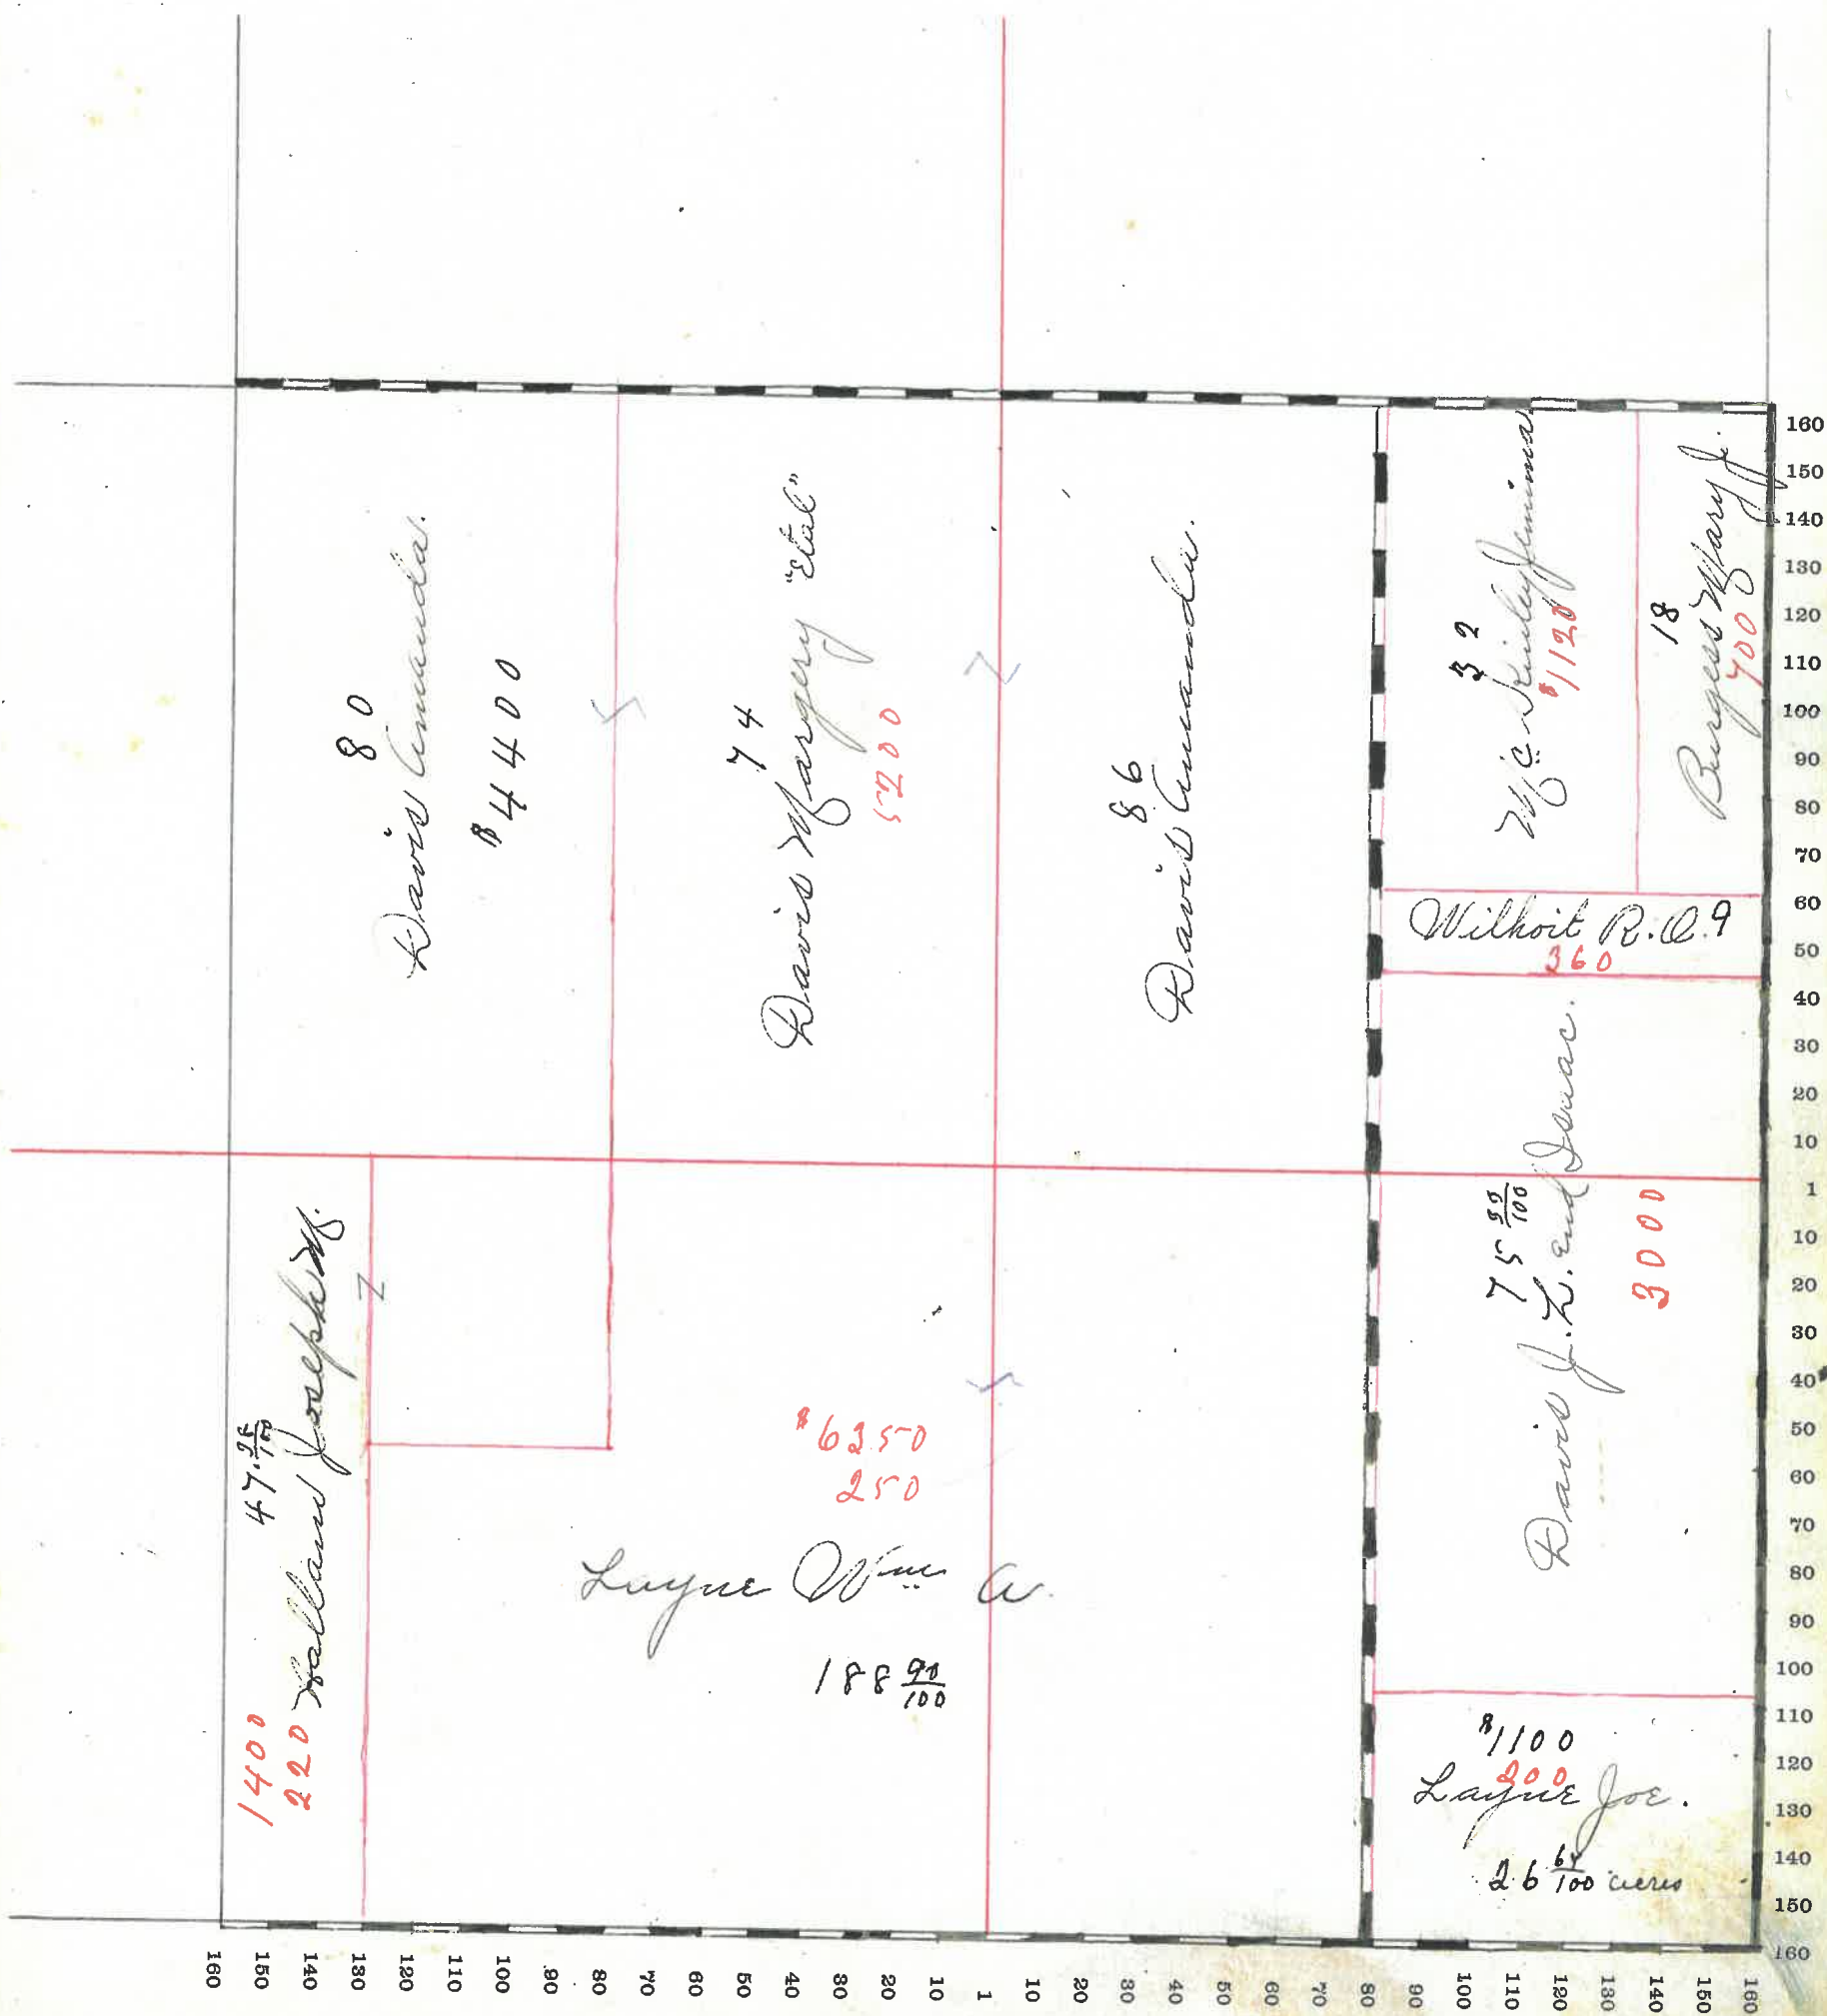 80
Davis Amanda.
$4400
74
Davis Margery "Etal"
5200
86
Davis Amanda.
32
McKinley Jemima
$1120
18
Burgess Mary J.
700
Wilhoit R.Q. 9
360
75 99/100
Davis J.L. and Isaac.
3000
Holland Joseph M.
1400
220
$6250
250
Layne Wm A.
188 90/100
$1100
200
Layne Joe.
26 64/100 acres
160
150
140
130
120
110
100
90
80
70
60
50
40
30
20
10
1
10
20
30
40
50
60
70
80
90
100
110
120
130
140
150
160
160 150 140 130 120 110 100 90 80 70 60 50 40 30 20 10 1 10 20 30 40 50 60 70 80 90 100 110 120 130 140 150 160